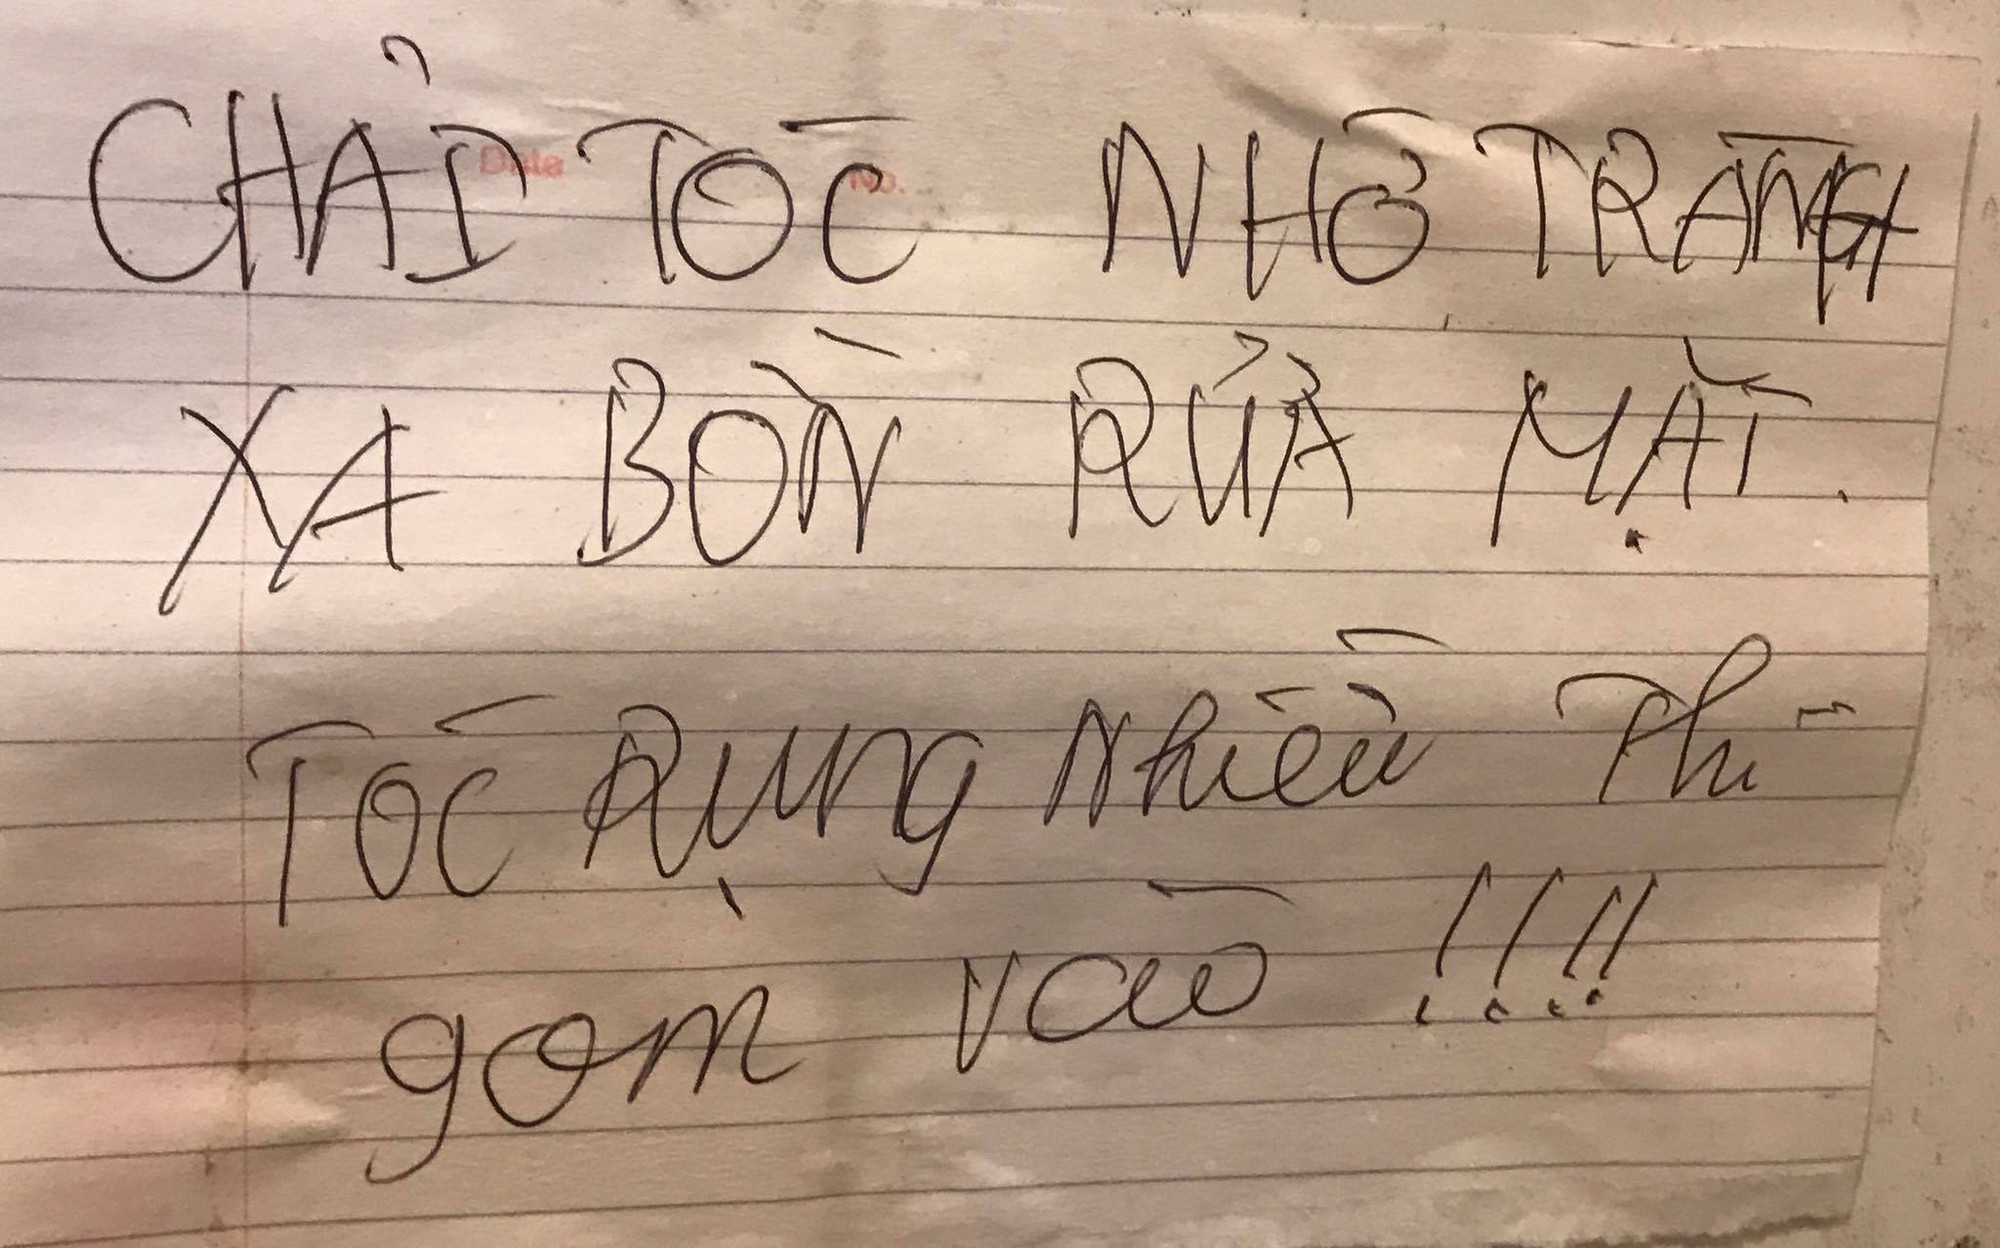 CHẢI TÓC NHỚ TRÁNH
XA BỒN RỬA MẶT.
TÓC Rụng Nhiều Thì
gom vào !!!!
Date
No.